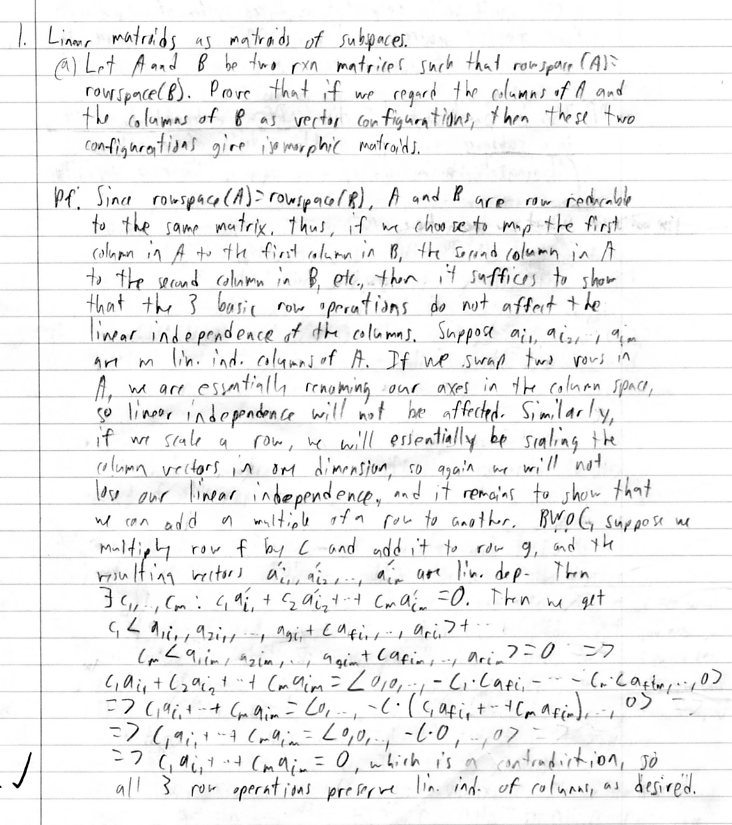 1. Linear matroids as matroids of subspaces.
(a) Let A and B be two rxn matrices such that rowspace(A)=
rowspace(B). Prove that if we regard the columns of A and
the columns of B as vector configurations, then these two
configurations give isomorphic matroids.
Pf: Since rowspace(A)=rowspace(B), A and B are row reducable
to the same matrix. Thus, if we choose to map the first
column in A to the first column in B, the second column in A
to the second column in B, etc., then it suffices to show
that the 3 basic row operations do not affect the
linear independence of the columns. Suppose a_{i_1}, a_{i_2}, ..., a_{i_m}
are m lin. ind. columns of A. If we swap two rows in
A, we are essentially renaming our axes in the column space,
so linear independence will not be affected. Similarly,
if we scale a row, we will essentially be scaling the
column vectors in one dimension, so again we will not
lose our linear independence, and it remains to show that
we can add a multiple of a row to another. BWOC, suppose we
multiply row f by C and add it to row g, and the
resulting vectors a'_{i_1}, a'_{i_2}, ..., a'_{i_m} are lin. dep. Then
∃ c_1, ..., c_m : c_1 a'_{i_1} + c_2 a'_{i_2} + ... + c_m a'_{i_m} = 0. Then we get
c_1 < a_{1i_1}, a_{2i_1}, ..., a_{gi_1} + C a_{fi_1}, ..., a_{ri_1} > + ...
c_m < a_{1i_m}, a_{2i_m}, ..., a_{gi_m} + C a_{fi_m}, ..., a_{ri_m} > = 0 =>
c_1 a_{i_1} + c_2 a_{i_2} + ... + c_m a_{i_m} = <0, 0, ..., -c_1·C a_{fi_1} - ... - c_m·C a_{fi_m}, ..., 0>
=> c_1 a_{i_1} + ... + c_m a_{i_m} = <0, ..., -C·(c_1 a_{fi_1} + ... + c_m a_{fi_m}), ..., 0>
=> c_1 a_{i_1} + ... + c_m a_{i_m} = <0, 0, ..., -C·0, ..., 0>
=> c_1 a_{i_1} + ... + c_m a_{i_m} = 0, which is a contradiction, so
all 3 row operations preserve lin. ind. of columns, as desired.